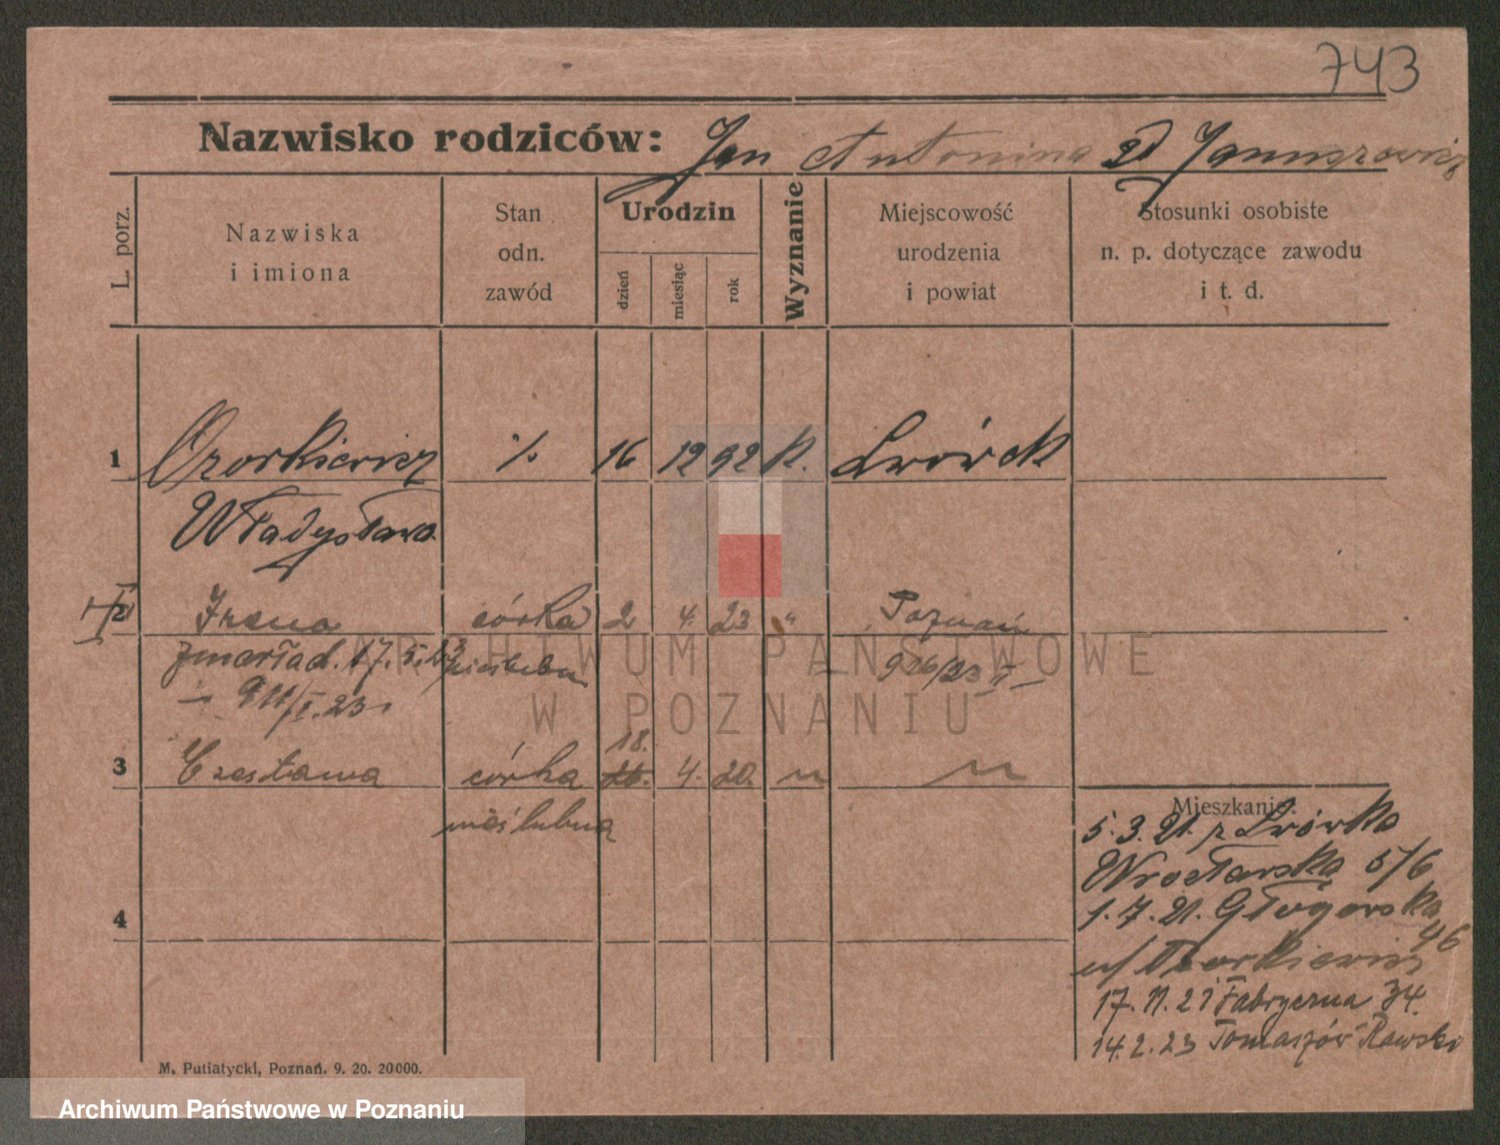 743
Nazwisko rodziców: Jan Antonina zd Januszewicz
L. porz.
Nazwiska
i imiona
Stan
odn.
zawód
Urodzin
dzień
miesiąc
rok
Wyznanie
Miejscowość
urodzenia
i powiat
Stosunki osobiste
n. p. dotyczące zawodu
i t. d.
1 Ozorkiewicz % 16 12 92 k. Lwówek
Władysława
2 Irena córka 2 4. 23 " Poznań
zmarła d. 17.5.23 nieślubna 926/23 I
911/I.23
18.
3 Czesława córka 4. 20. " "
nieślubna
Mieszkanie:
5.3.21. z Lwówka
Wrocławska 5/6
1.7.21. Głogowska
46
u/ Ozorkiewicz
17.11.21 Fabryczna 34.
14.2.23 Tomaszów Rawski
4
M. Putiatycki, Poznań. 9. 20. 20000.
ARCHIWUM PAŃSTWOWE
W POZNANIU
Archiwum Państwowe w Poznaniu